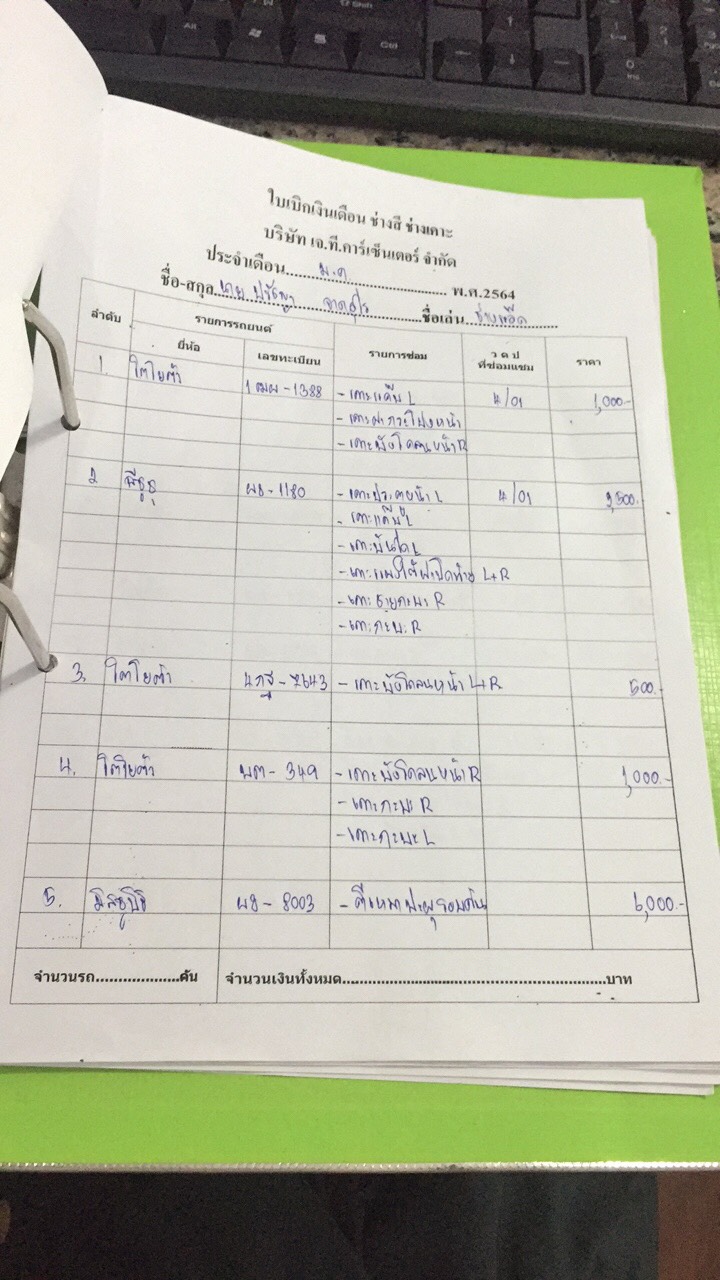 ใบเบิกเงินเดือน ช่างสี ช่างเคาะ
บริษัท เจ.ที.คาร์เซ็นเตอร์ จำกัด
ประจำเดือน..........ม.ค.......................... พ.ศ.2564
ชื่อ-สกุล นาย ปรัชญา ..................ชื่อเล่น ช่าง
ลำดับ รายการรถยนต์ รายการซ่อม ว ด ป ราคา
ยี่ห้อ เลขทะเบียน ที่ซ่อมแซม
1. โตโยต้า 1 ฒผ - 1388 - เคาะแค๊ป L 4/01 1,000.-
- เคาะฝากระโปรงหน้า
- เคาะบังโคลนหน้า R
2 อีซูซุ ผธ - 1180 - เคาะประตูหน้า L 4/01 2,500.-
- เคาะแค๊ป L
- เคาะบันได L
- เคาะแผงใต้ฝาปิดท้าย L+R
- เคาะชายกะบะ R
- เคาะกะบะ R
3. โตโยต้า 4กฐ - 7643 - เคาะบังโคลนหน้า L+R 500.-
4. โตโยต้า ผต - 349 - เคาะบังโคลนหน้า R 1,000.-
- เคาะกะบะ R
- เคาะกะบะ L
5. มิตซูบิชิ ผธ - 8003 - ตีเหมาปะผุรอบคัน 6,000.-
จำนวนรถ...................คัน จำนวนเงินทั้งหมด............................................................บาท